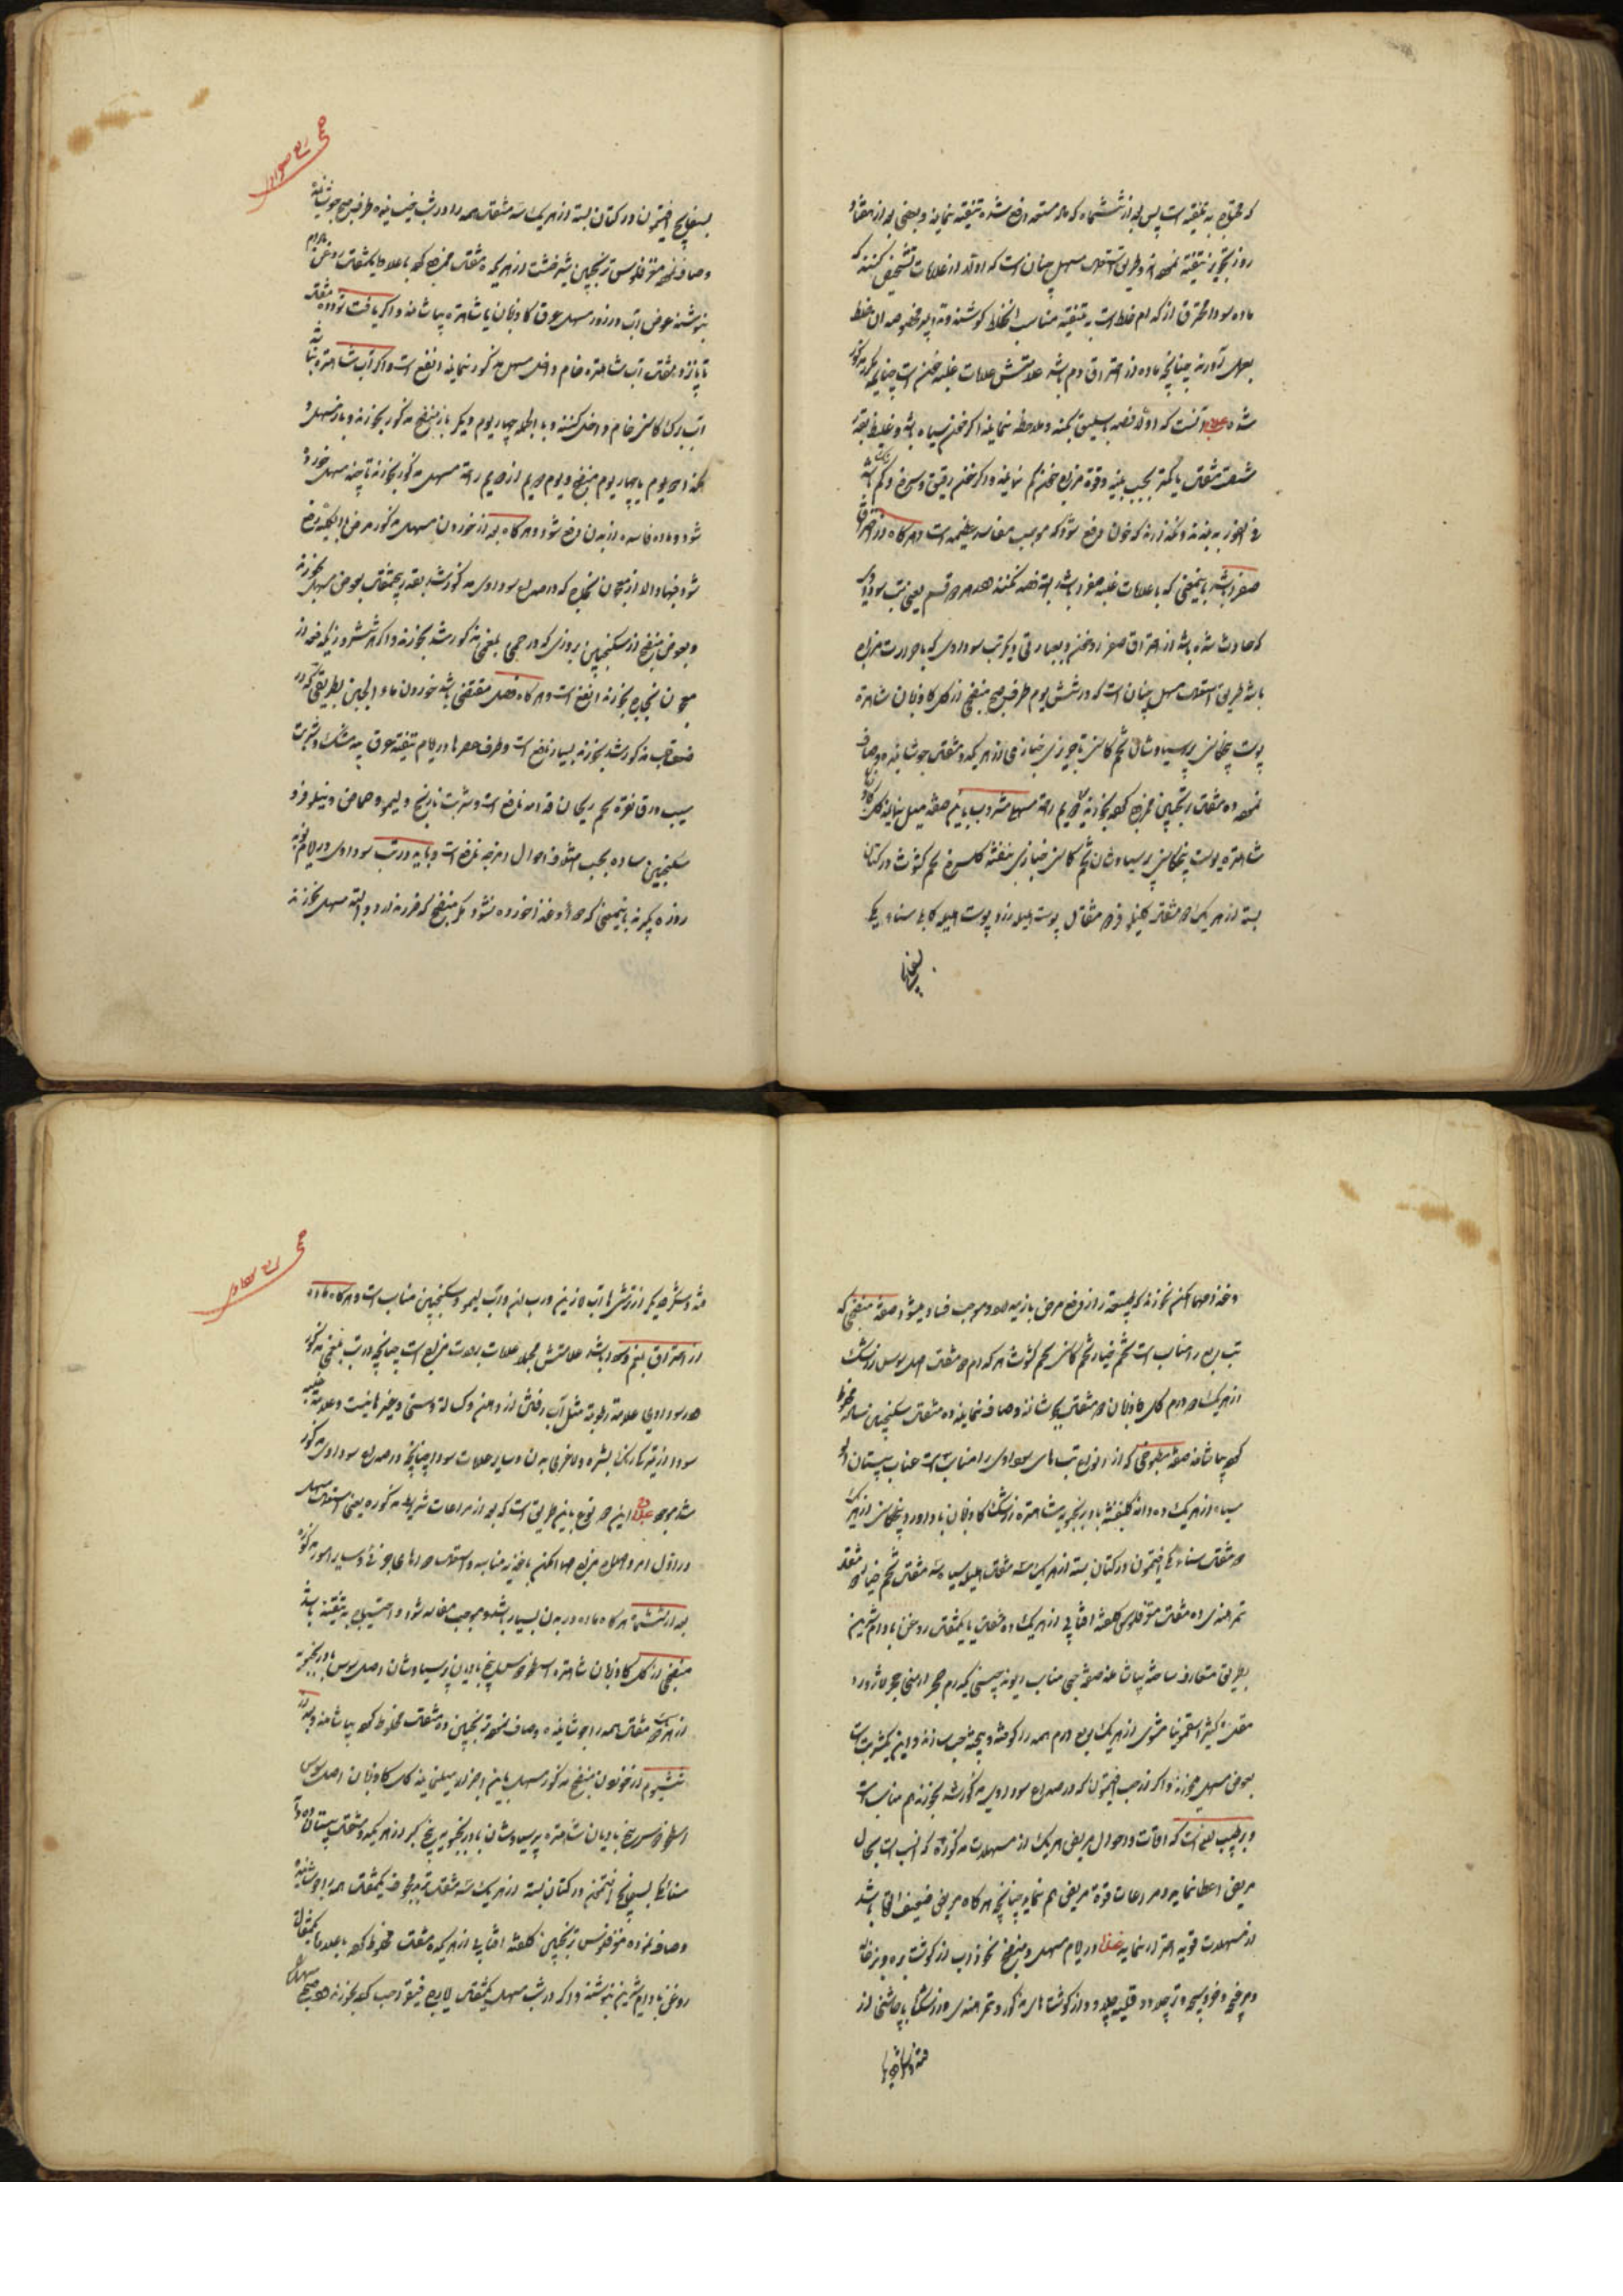 که محتاج به تنقیه است پس بعد از ششماه که ماده مستعد دفع شده تنقیه نمایند و بعضی بعد از هفتاد
روز تجویز تنقیه نموده‌اند و طریق استعمال مسهل چنان است که اولا از علامات تشخیص کنند که
ماده سودا محترق از کدام خلط است به تنقیه مناسب آنخلط کوشند و تدابیر مخصوصه ان خلط
بعمل آورند چنانچه ماده از احتراق دم باشد علامتش علامات غلبه خون است چنانچه مکرر مذکور
شده علاج آنست که اولا فصد باسلیق بکنند و ملاحظه نمایند اگر خون سیاه باشد و غلیظ بقدر
شصت مثقال یا کمتر بحسب بنیه و قوة مزاج خون کم نمایند و اگر خون رقیق و سرخ و کم رنگ باشد
فی الفور به بندند و نگذارند که خون دفع شود که موجب مفاسد عظیمه است و هرگاه از احتراق
صفرا باشد باینمعنی که با علامات غلبه صفرا باشد البته فصد نکنند
که حادث شده باشد از احتراق صفرا و خون و بعبارتی دیگر تب سوداوی که با حرارت مزاج
باشد طریق استعمال مسهل چنان است که در شش یوم هر صبح منضجی از گل گاوزبان شاهتره
پوست بیخ کاسنی پرسیاوشان تخم کاسنی تاجریزی خبازی از هر یک دو مثقال جوشانیده و صاف
نموده ده مثقال ترنجبین ممزوج کرده بخورند
شاهتره پوست بیخ کاسنی پرسیاوشان تخم کاسنی خبازی بنفشه گلسرخ تخم کشوث در کتان
بسته از هر یک دو مثقال گل نیلوفر دو مثقال پوست هلیله زرد پوست هلیله کابلی سناء مکی
بسفایج
حمی ربع سوداوی
بسفایج افتیمون در کتان بسته از هر یک سه مثقال همه را در شب خیسانیده هر صبح جوشانیده
و صاف نموده مغز فلوس ترنجبین شیرخشت از هر یک ده مثقال ممزوج کرده با علاوه یکمثقال روغن بادام
بنوشند عوض آب در روز مسهل عرق گاوزبان یا شاهتره بیاشامند و اگر یافت شود ده مثقال
تا پانزده مثقال آب شاهتره خام داخل مسهل مذکور نمایند انفع است و اگر آب شاهتره نباشد
آب برگ کاسنی خام داخل کنند و بالجمله چهار یوم دیگر باز منضج مذکور بخورند و باز مسهل و
هکذا سه یوم یا چهار یوم منضج و یوم سیم از سیم راحة مسهل مذکور بخورند تا چند مسهل خورده
شود و ماده فاسده از بدن دفع شود و هرگاه بعد از خوردن مسهل مذکور مرض بالکلیه رفع
شود فبها و الا از معجون نجاح که در صداع سوداوی مذکور شد بقدر پنجمثقال بعوض مسهل بخورند
و بعوض منضج از سکنجبین بزوری که در حمی بلغمی مذکور شد بخورند و اگر هر شش روز یکدفعه از
معجون نجاح بخورند انفع است و هرگاه فصل مقتضی باشد خوردن ماء الجبن بطریقی که در
خفقان مذکور شد بخورند بسیار نافع است و طرف عصرها در ایام تنقیه عرق بید مشک و شربت
سیب ورق نقره تخم ریحان قدامه نافع است و شربت نارنج و لیمو و حماض و نیلوفر و
سکنجبین ساده بحسب اختلاف احوال و امزجه نافع است و باید در تب سوداوی در ایام نوبه
روزه بگیرند باینمعنی که دوا و غذا خورده نشود مگر منضج که ضرر ندارد و البته مسهل نخورند
و غذا مهما امکن نخورند که طبیعت را از دفع مرض باز میدارد و موجب فساد میشود صفة منضجی که
تب ربع را مناسب است تخم خیار تخم کاسنی تخم کشوث هر کدام دو مثقال اصل سوس زرشک
از هر یک سه درم گل گاوزبان دو مثقال بجوشانند و صاف نمایند و ده مثقال سکنجبین ساده مخلوط
کرده بیاشامند صفة مطبوخی که از انواع تب های سوداوی را مناسب است عناب سپستان آلو
سیاه از هر یک ده دانه گلبنفشه بادرنجبویه شاهتره زرشک گاوزبان باداورد بیخ کاسنی از هر یک
دو مثقال سناء مکی افتیمون در کتان بسته از هر یک سه مثقال هلیله سیاه سه مثقال تخم خیار دو مثقال
تمر هندی ده مثقال مغز فلوس گلقند آفتابی از هر یک ده مثقال با یکمثقال روغن بادام شیرین
بطریق متعارف ساخته بیاشامند صفة حبی مناسب ایارج فیقرا یکدرم حجر ارمنی حجر لاژورد
مقل کتیرا سقمونیا مشوی از هر یک ربع درم همه را کوفته و بیخته حب سازند و این یکشربت است
بعوض مسهل بخورند و اگر از حب افتیمون که در صداع سوداوی مذکور شد بخورند هم مناسب است
و بر طبیب لازم است که اوقات و احوال مریض هر یک از مسهلات مذکوره که انسب است بحال
مریض اعطا نماید و مراعات قوة مریض هم نماید چنانچه هرگاه مریض ضعیف القوا باشد
از مسهلات قویه احتراز نماید غذا در ایام مسهل و منضج نخوداب از گوشت بره و بزغاله
و مرغ و خروسبچه و ترچلاو و قلیه چلاو و از گوشتهای مذکور و تمر هندی و زرشک با چاشنی از
قند و سکر
حمی ربع سوداوی
قند و سکر و یا از ترشیها آب نارنج و رب انار و آب لیمو و سکنجبین مناسب است و هرگاه ماده
از احتراق بلغم و سودا باشد علامتش مجملا علامات برودت مزاج است چنانچه در تب بلغمی مذکور
علامة رطوبة مثل آب رفتن از دهن و کسالة و سستی و غیر هاست و علامة غلبه
سودا از تیرگی رنگ بشره و لاغری بدن و سایر علامات سودا چنانچه در صداع سوداوی مذکور
شد موجود علاج این دو نوع باین طریق است که بعد از مراعات شرایط مذکوره یعنی استعمال مسهل
در اول امر و اصلاح مزاج مهما امکن باغذیه مناسبه و استعمال دواهای جزئی و سایر امور مذکوره
بعد از ششماه هرگاه ماده در بدن بسیار باشد و موجب مفاسد شود و احتیاج به تنقیه باشد
منضجی از گل گاوزبان شاهتره اسطوخودوس بیخ بادیان پرسیاوشان اصل سوس بادرنجبویه
از هر یک مثقال همه را جوشانیده و صاف نموده ترنجبین ده مثقال مخلوط کرده بیاشامند و بعد از
شش یوم از خوردن منضج مذکور مسهل باین اجزاء میل نمایند گل گاوزبان اصل سوس
اسطوخودوس بیخ بادیان شاهتره پرسیاوشان بادرنجبویه بیخ کبر از هر یک دو مثقال سپستان ده دانه
سناء مکی بسفایج افتیمون در کتان بسته از هر یک سه مثقال تربد مجوف یکمثقال همه را جوشانیده
و صاف نموده مغز فلوس ترنجبین گلقند آفتابی از هر یک ده مثقال مخلوط کرده با علاوه یکمثقال
روغن بادام شیرین بنوشند و اگر در شب مسهل یکمثقال ایارج فیقرا حب کرده بخورند و صبح مسهل